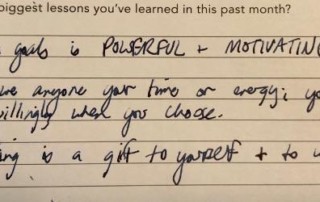 biggest lessons you've learned in this past month?
goals is POWERFUL + MOTIVATING
anyone your time or energy; yo
willingly when you choose.
ing is a gift to yourself + to